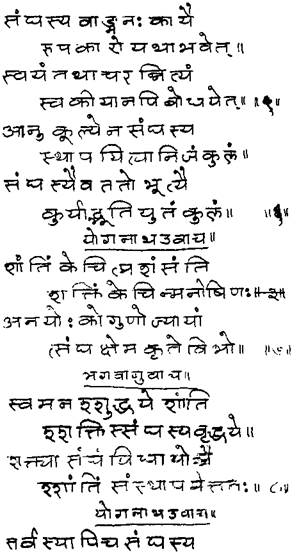 संघस्य वाङ्मनः कायै
रुपकारो यथा भवेत्॥
स्वयं तथाचरन्नित्यं
स्वकीयानपि बोधयेत्॥
आनुकूल्येन संघस्य
स्थापयित्वा निजं कुलं॥
संघस्यैव ततो भूत्यै
कुर्याद्भूतियुतं कुलं॥
योगनाथ उवाच॥
शांतिं केचित्प्रशंसंति
शक्तिं केचिन्मनीषिणः॥
अनयोः को गुणो ज्यायां
त्संघक्षेमकृते विभो॥
भगवानुवाच॥
स्वमनश्शुद्धये शांति
श्शक्तिस्संघस्य वृद्धये॥
शक्त्या संघं विधायोच्चै
श्शांतिं संस्थापयेत्ततः॥
योगनाथ उवाच॥
सर्वस्यापिच संघस्य